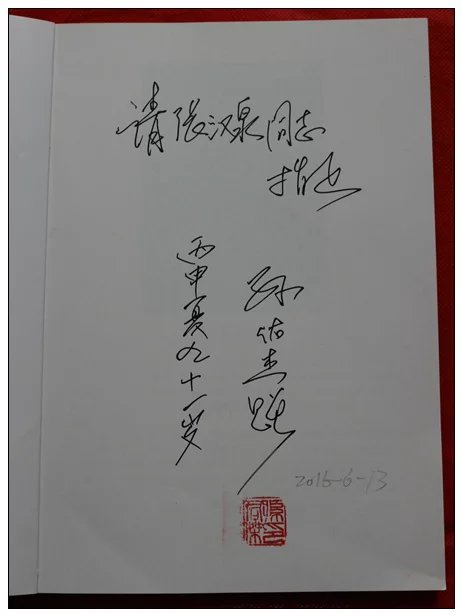 请张汉泉同志
指正
孙佑杰赠
丙申夏九十一岁
2016-6-13